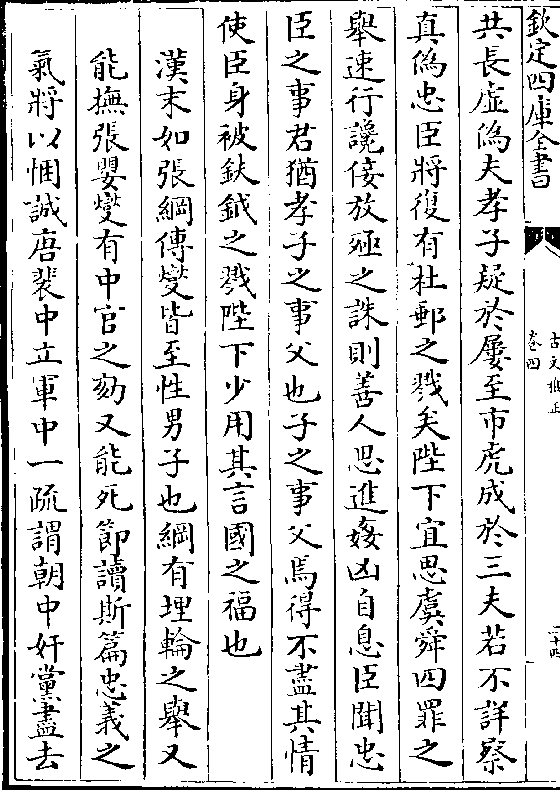 欽定四庫全書
卷四
共長虛偽夫孝子疑於屢至市虎成於三夫若不詳察
真偽忠臣將復有杜郵之戮矣陛下宜思虞舜四罪之
舉速行讒佞放殛之誅則善人思進姦凶自息臣聞忠
臣之事君猶孝子之事父也子之事父焉得不盡其情
使臣身被鈇鉞之戮陛下少用其言國之福也
漢末如張綱傅燮皆至性男子也綱有埋輪之舉又
能撫張嬰燮有中官之劾又能死節讀斯篇忠義之
氣將以悃誠唐裴中立軍中一疏謂朝中奸黨盡去